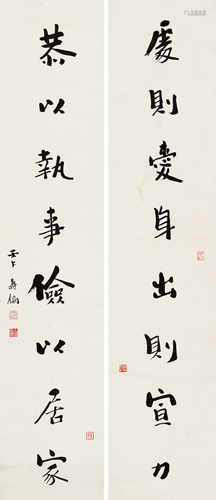 處則愛身出則宣力
恭以執事儉以居家
壬午